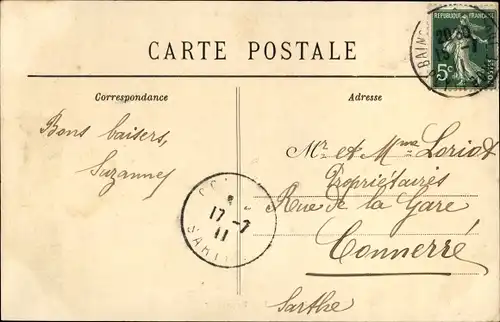 CARTE POSTALE
REPUBLIQUE FRANÇAISE
5c
POSTES
Correspondance
Adresse
Bons baisers,
Suzanne
Mr et Mme Loriot
Propriétaires
Rue de la Gare
Connerré
Sarthe
17 -7
11